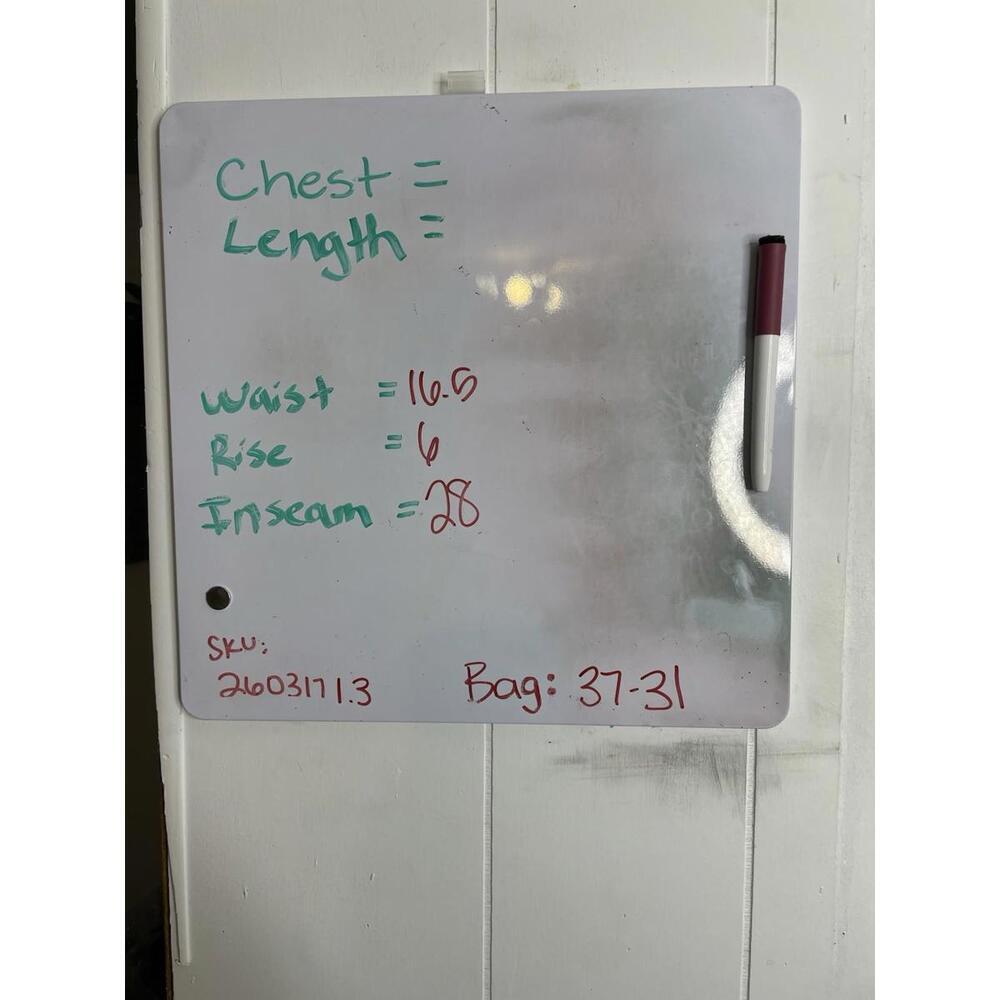 Chest =
Length =
Waist = 16.5
Rise = 6
Inseam = 28
SKU:
2603171.3
Bag: 37-31